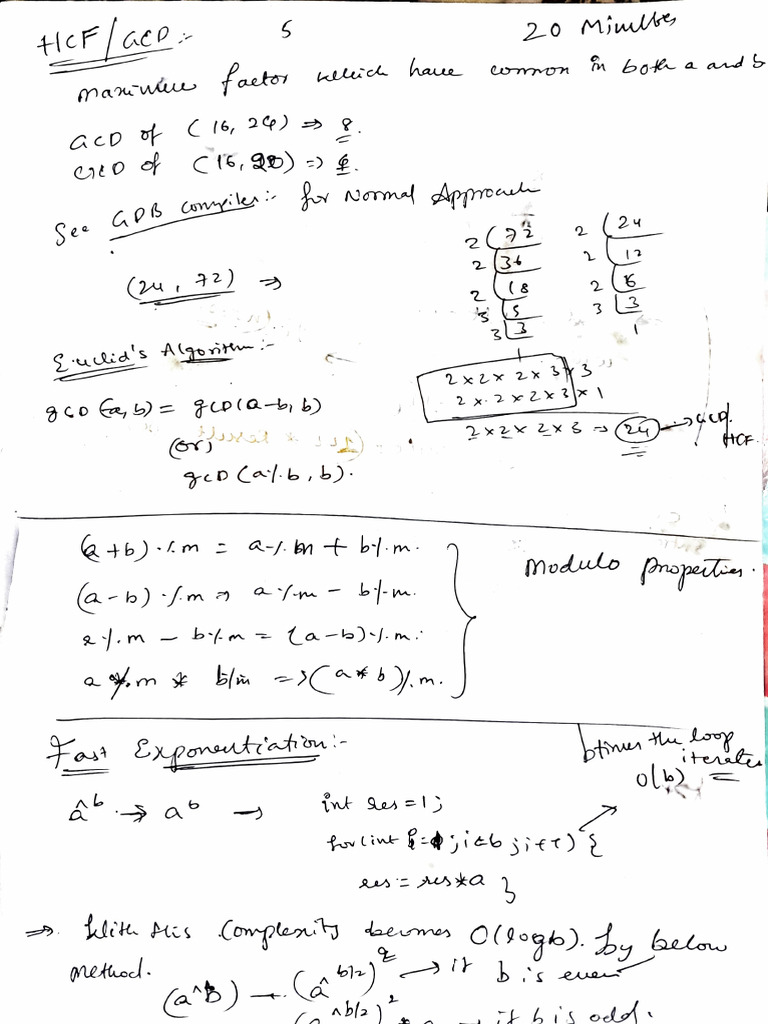 HCF/GCD:- 5 20 Minutes
maximum factor which have common in both a and b
GCD of (16, 24) => 8.
GCD of (16, 20) => 4.
See GDB compiler:- for Normal Approach
(24, 72) =>
2 72 2 24
2 36 2 12
2 18 2 6
3 3 3
3 3 1
1
Euclid's Algorithm:-
2 x 2 x 2 x 3 x 3
2 x 2 x 2 x 3 x 1
2 x 2 x 2 x 3 => 24 → GCD/HCF.
gCD(a, b) = gCD(a-b, b)
(or)
gCD(a%b, b).
(a+b)%m = a%m + b%m.
(a-b)%m => a%m - b%m.
a%m - b%m = (a-b)%m.
a%m * b%m => (a*b)%m.
Modulo properties.
Fast Exponentiation:-
b times the loop iterates
O(b)
a^b → a^b → int res=1;
for(int i= ;i<=b;i++) {
res = res*a }
=> With this Complexity becomes O(logb). by below
method.
(a^b) → (a^b/2)^2 → if b is even
(a^b/2)^2 * a → if b is odd.